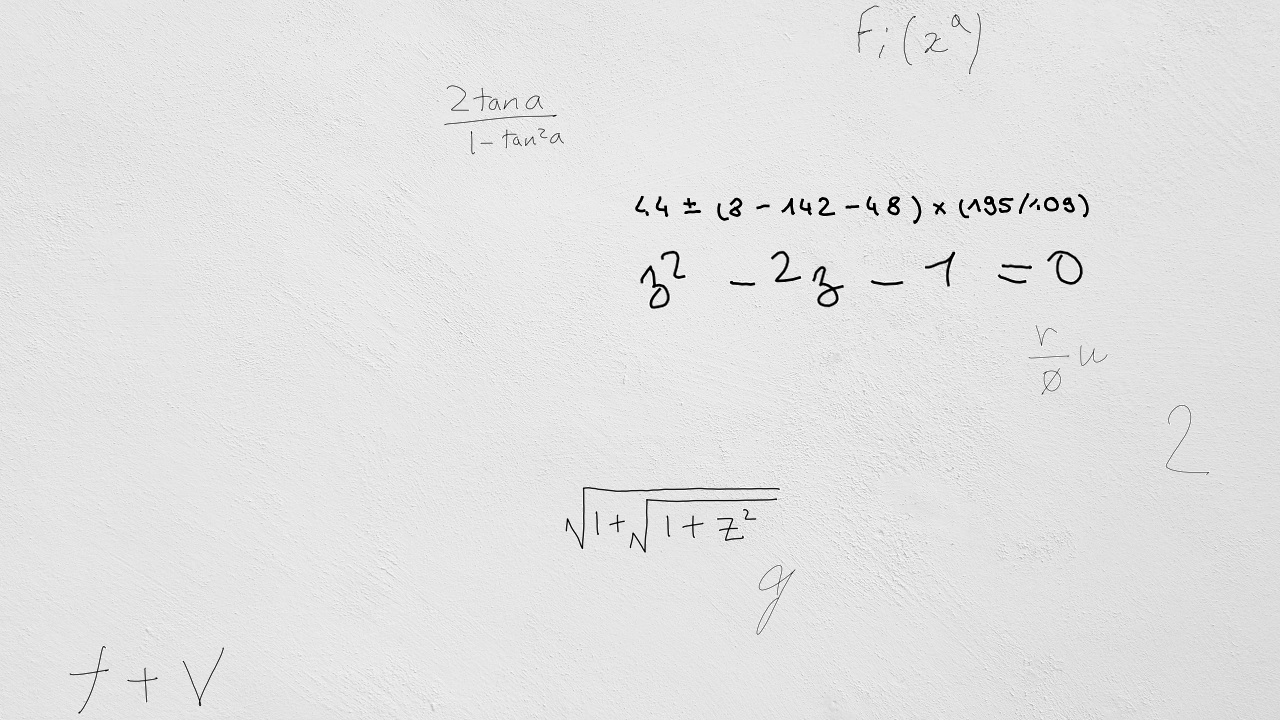 Fi(z^a)
2tana
1-tan²a
44 ± (3 - 142 - 48) × (195/109)
z² - 2z - 1 = 0
r/ø u
2
√(1+√(1+z²))
g
f + V